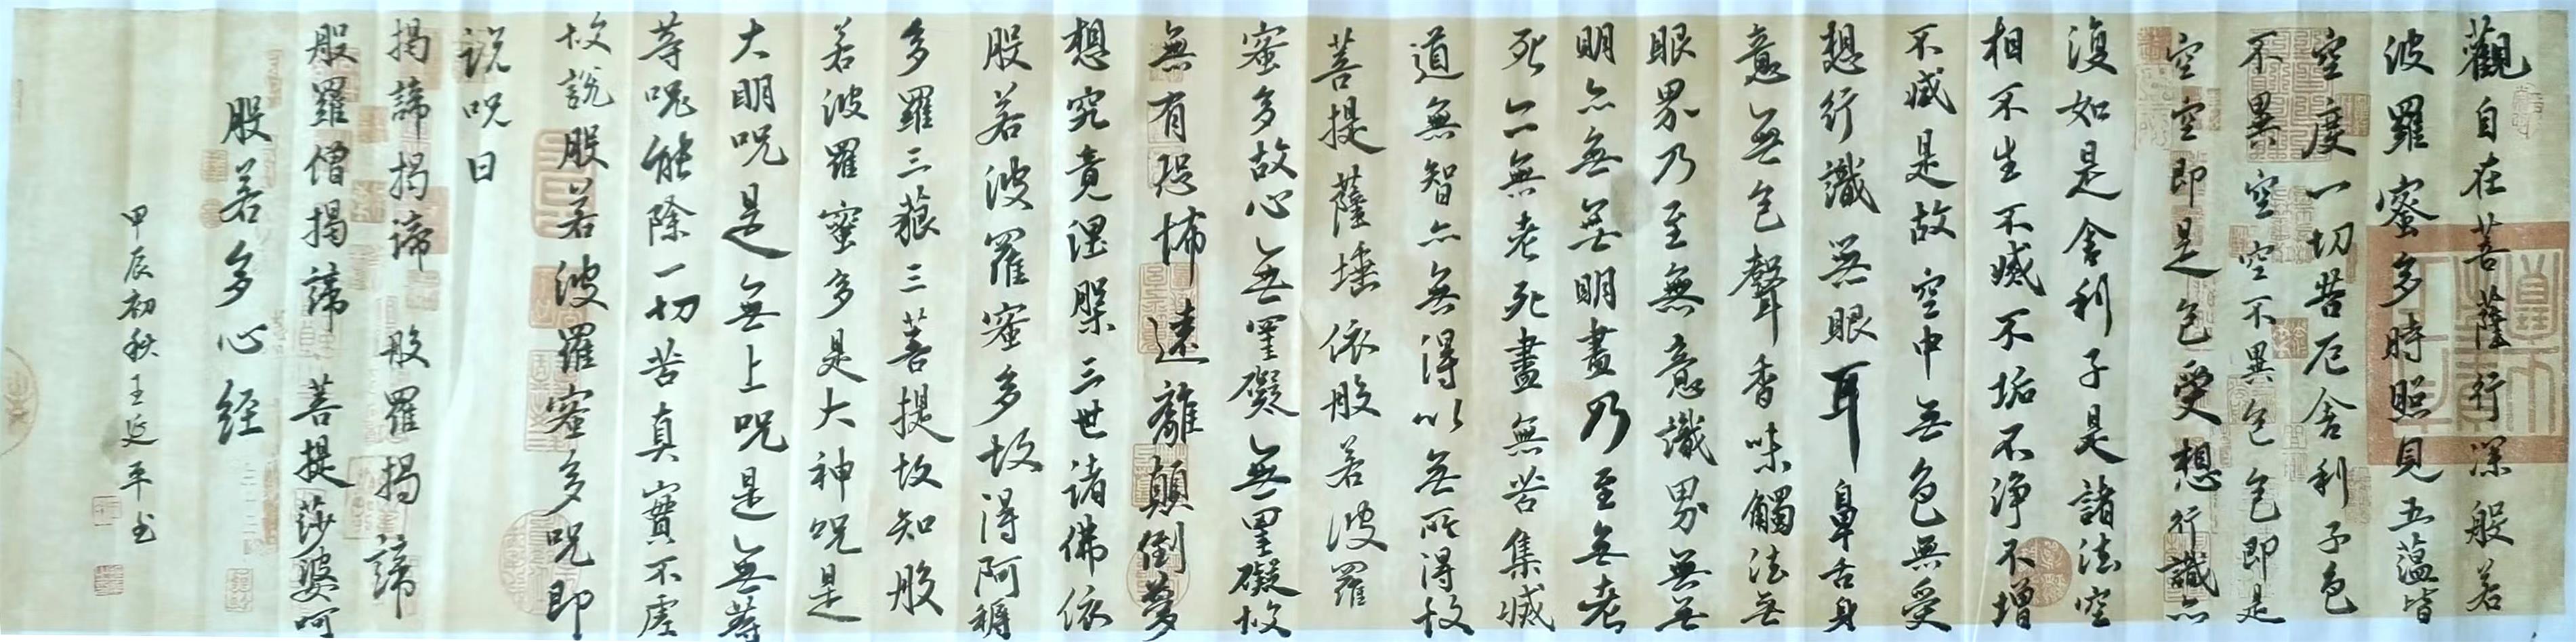 觀自在菩薩行深般若
波羅蜜多時照見五蘊皆
空度一切苦厄舍利子色
不異空空不異色色即是
空空即是色受想行識亦
復如是舍利子是諸法空
相不生不滅不垢不淨不增
不減是故空中無色無受
想行識無眼耳鼻舌身
意無色聲香味觸法無
眼界乃至無意識界無無
明亦無無明盡乃至無老
死亦無老死盡無苦集滅
道無智亦無得以無所得故
菩提薩埵依般若波羅
蜜多故心無罣礙無罣礙故
無有恐怖遠離顛倒夢
想究竟涅槃三世諸佛依
般若波羅蜜多故得阿耨
多羅三藐三菩提故知般
若波羅蜜多是大神咒是
大明咒是無上咒是無等
等咒能除一切苦真實不虛
故說般若波羅蜜多咒即
说咒曰
揭諦揭諦 般羅揭諦
般羅僧揭諦 菩提莎婆呵
般若多心经
甲辰初秋王延平书